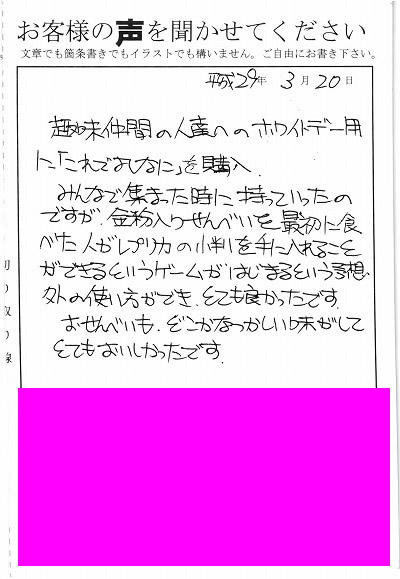 お客様の声を聞かせてください
文章でも箇条書きでもイラストでも構いません。ご自由にお書き下さい。
平成29年 3月20日
趣味仲間の人達へのホワイトデー用
に「これでよしなに」を購入.
みんなで集また時に持っていったの
ですが、金粉入りせんべいを最初に食
べた人がレプリカの小判を手に入れること
ができるというゲームがはじまるという予想
外の使い方ができ、とても良かったです.
おせんべいも、どこかなつかしい味がして
とてもおいしかったです.
切り取り線